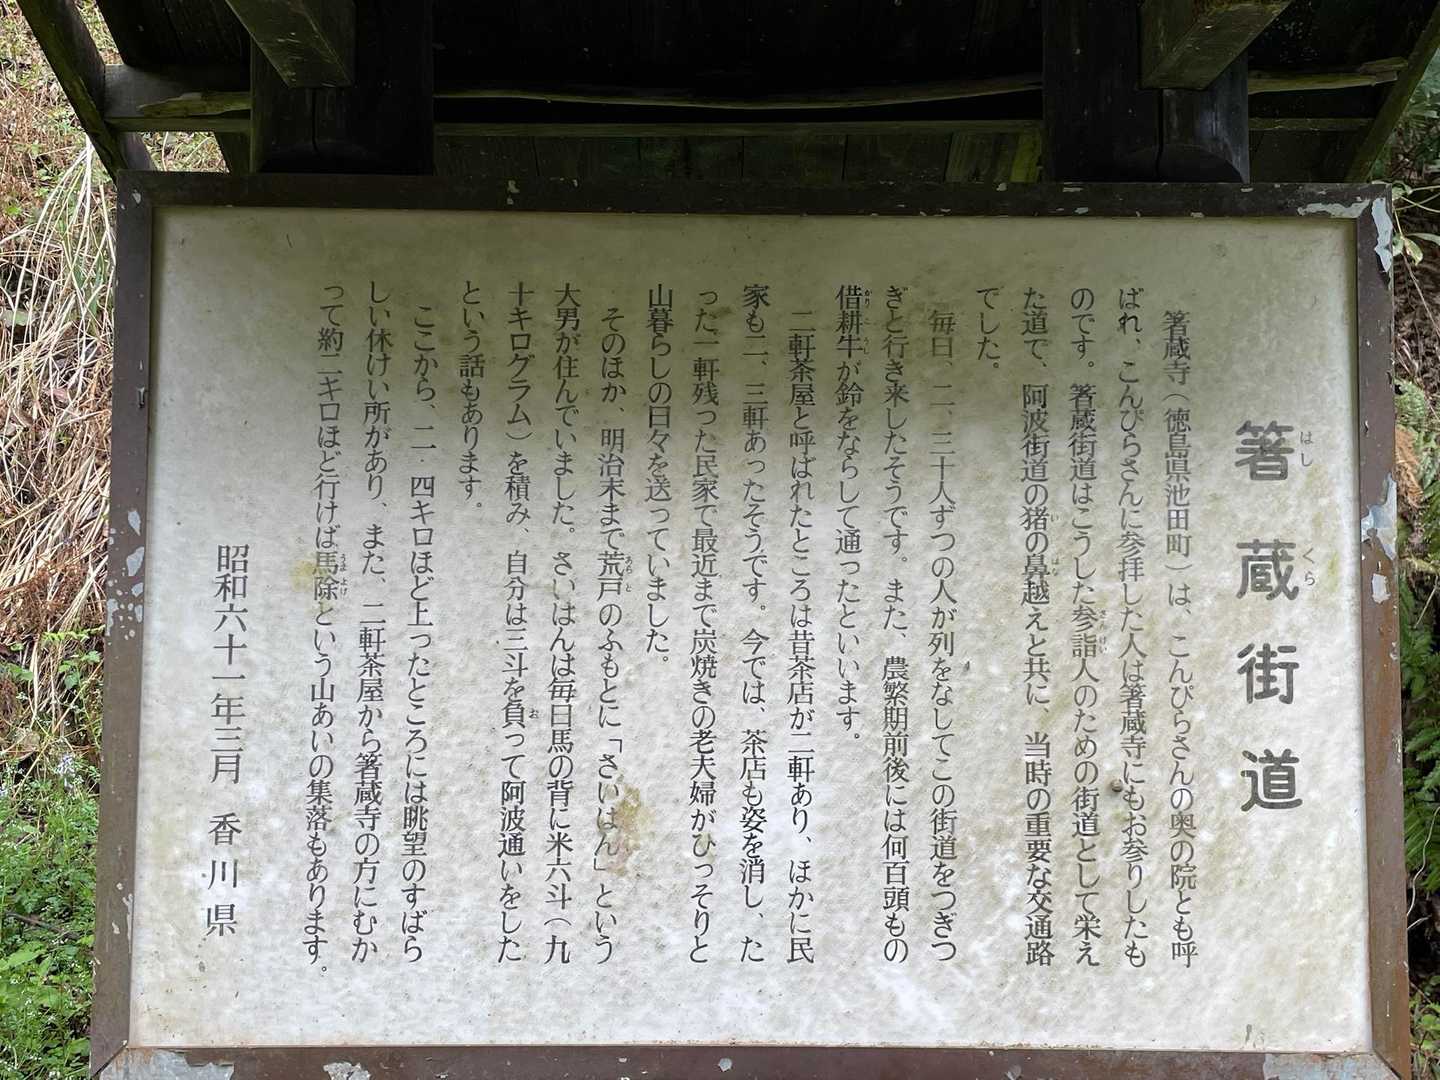 箸蔵街道
箸蔵寺(徳島県池田町)は、こんぴらさんの奥の院とも呼
ばれ、こんぴらさんに参拝した人は箸蔵寺にもお参りしたも
のです。箸蔵街道はこうした参詣人のための街道として栄え
た道で、阿波街道の猪の鼻越えと共に、当時の重要な交通路
でした。
毎日、二、三十人ずつの人が列をなしてこの街道をつぎつ
ぎと行き来したそうです。また、農繁期前後には何百頭もの
借耕牛が鈴をならして通ったといいます。
二軒茶屋と呼ばれたところは昔茶店が二軒あり、ほかに民
家も二、三軒あったそうです。今では、茶店も姿を消し、た
った一軒残った民家で最近まで炭焼きの老夫婦がひっそりと
山暮らしの日々を送っていました。
そのほか、明治末まで荒戸のふもとに「さいはん」という
大男が住んでいました。さいはんは毎日馬の背に米六斗(九
十キログラム)を積み、自分は三斗を負って阿波通いをした
という話もあります。
ここから、二・四キロほど上ったところには眺望のすばら
しい休けい所があり、また、二軒茶屋から箸蔵寺の方にむか
って約二キロほど行けば馬除という山あいの集落もあります。
昭和六十一年三月 香川県